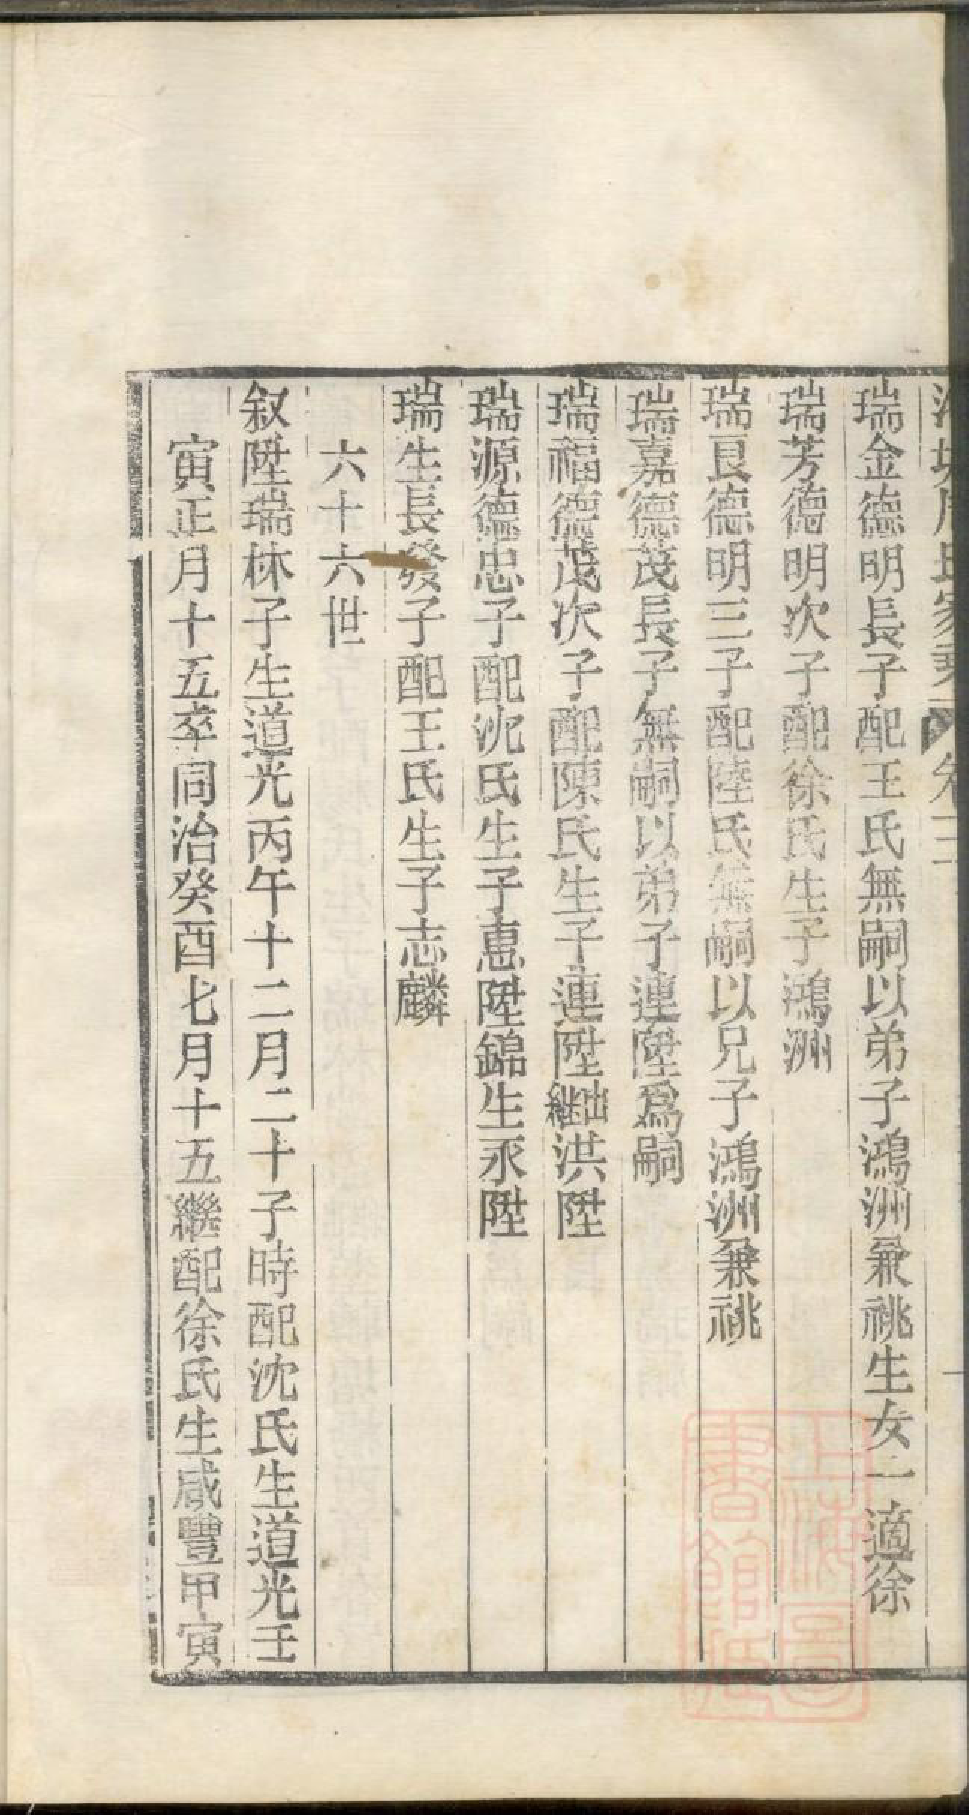 周氏家乘 卷三
瑞金德明長子配王氏無嗣以弟子鴻洲兼祧生女一適徐
瑞芳德明次子配徐氏生子鴻洲
瑞良德明三子配陸氏無嗣以兄子鴻洲兼祧
瑞嘉德茂長子無嗣以弟子連陞爲嗣
瑞福德茂次子配陳氏生子連陞出繼洪陞
瑞源德忠子配沈氏生子惠陞錦生永陞
瑞生長發子配王氏生子志麟
六十六世
叙陞瑞林子生道光丙午十二月二十子時配沈氏生道光壬
寅正月十五卒同治癸酉七月十五繼配徐氏生咸豐甲寅
上海圖書館藏